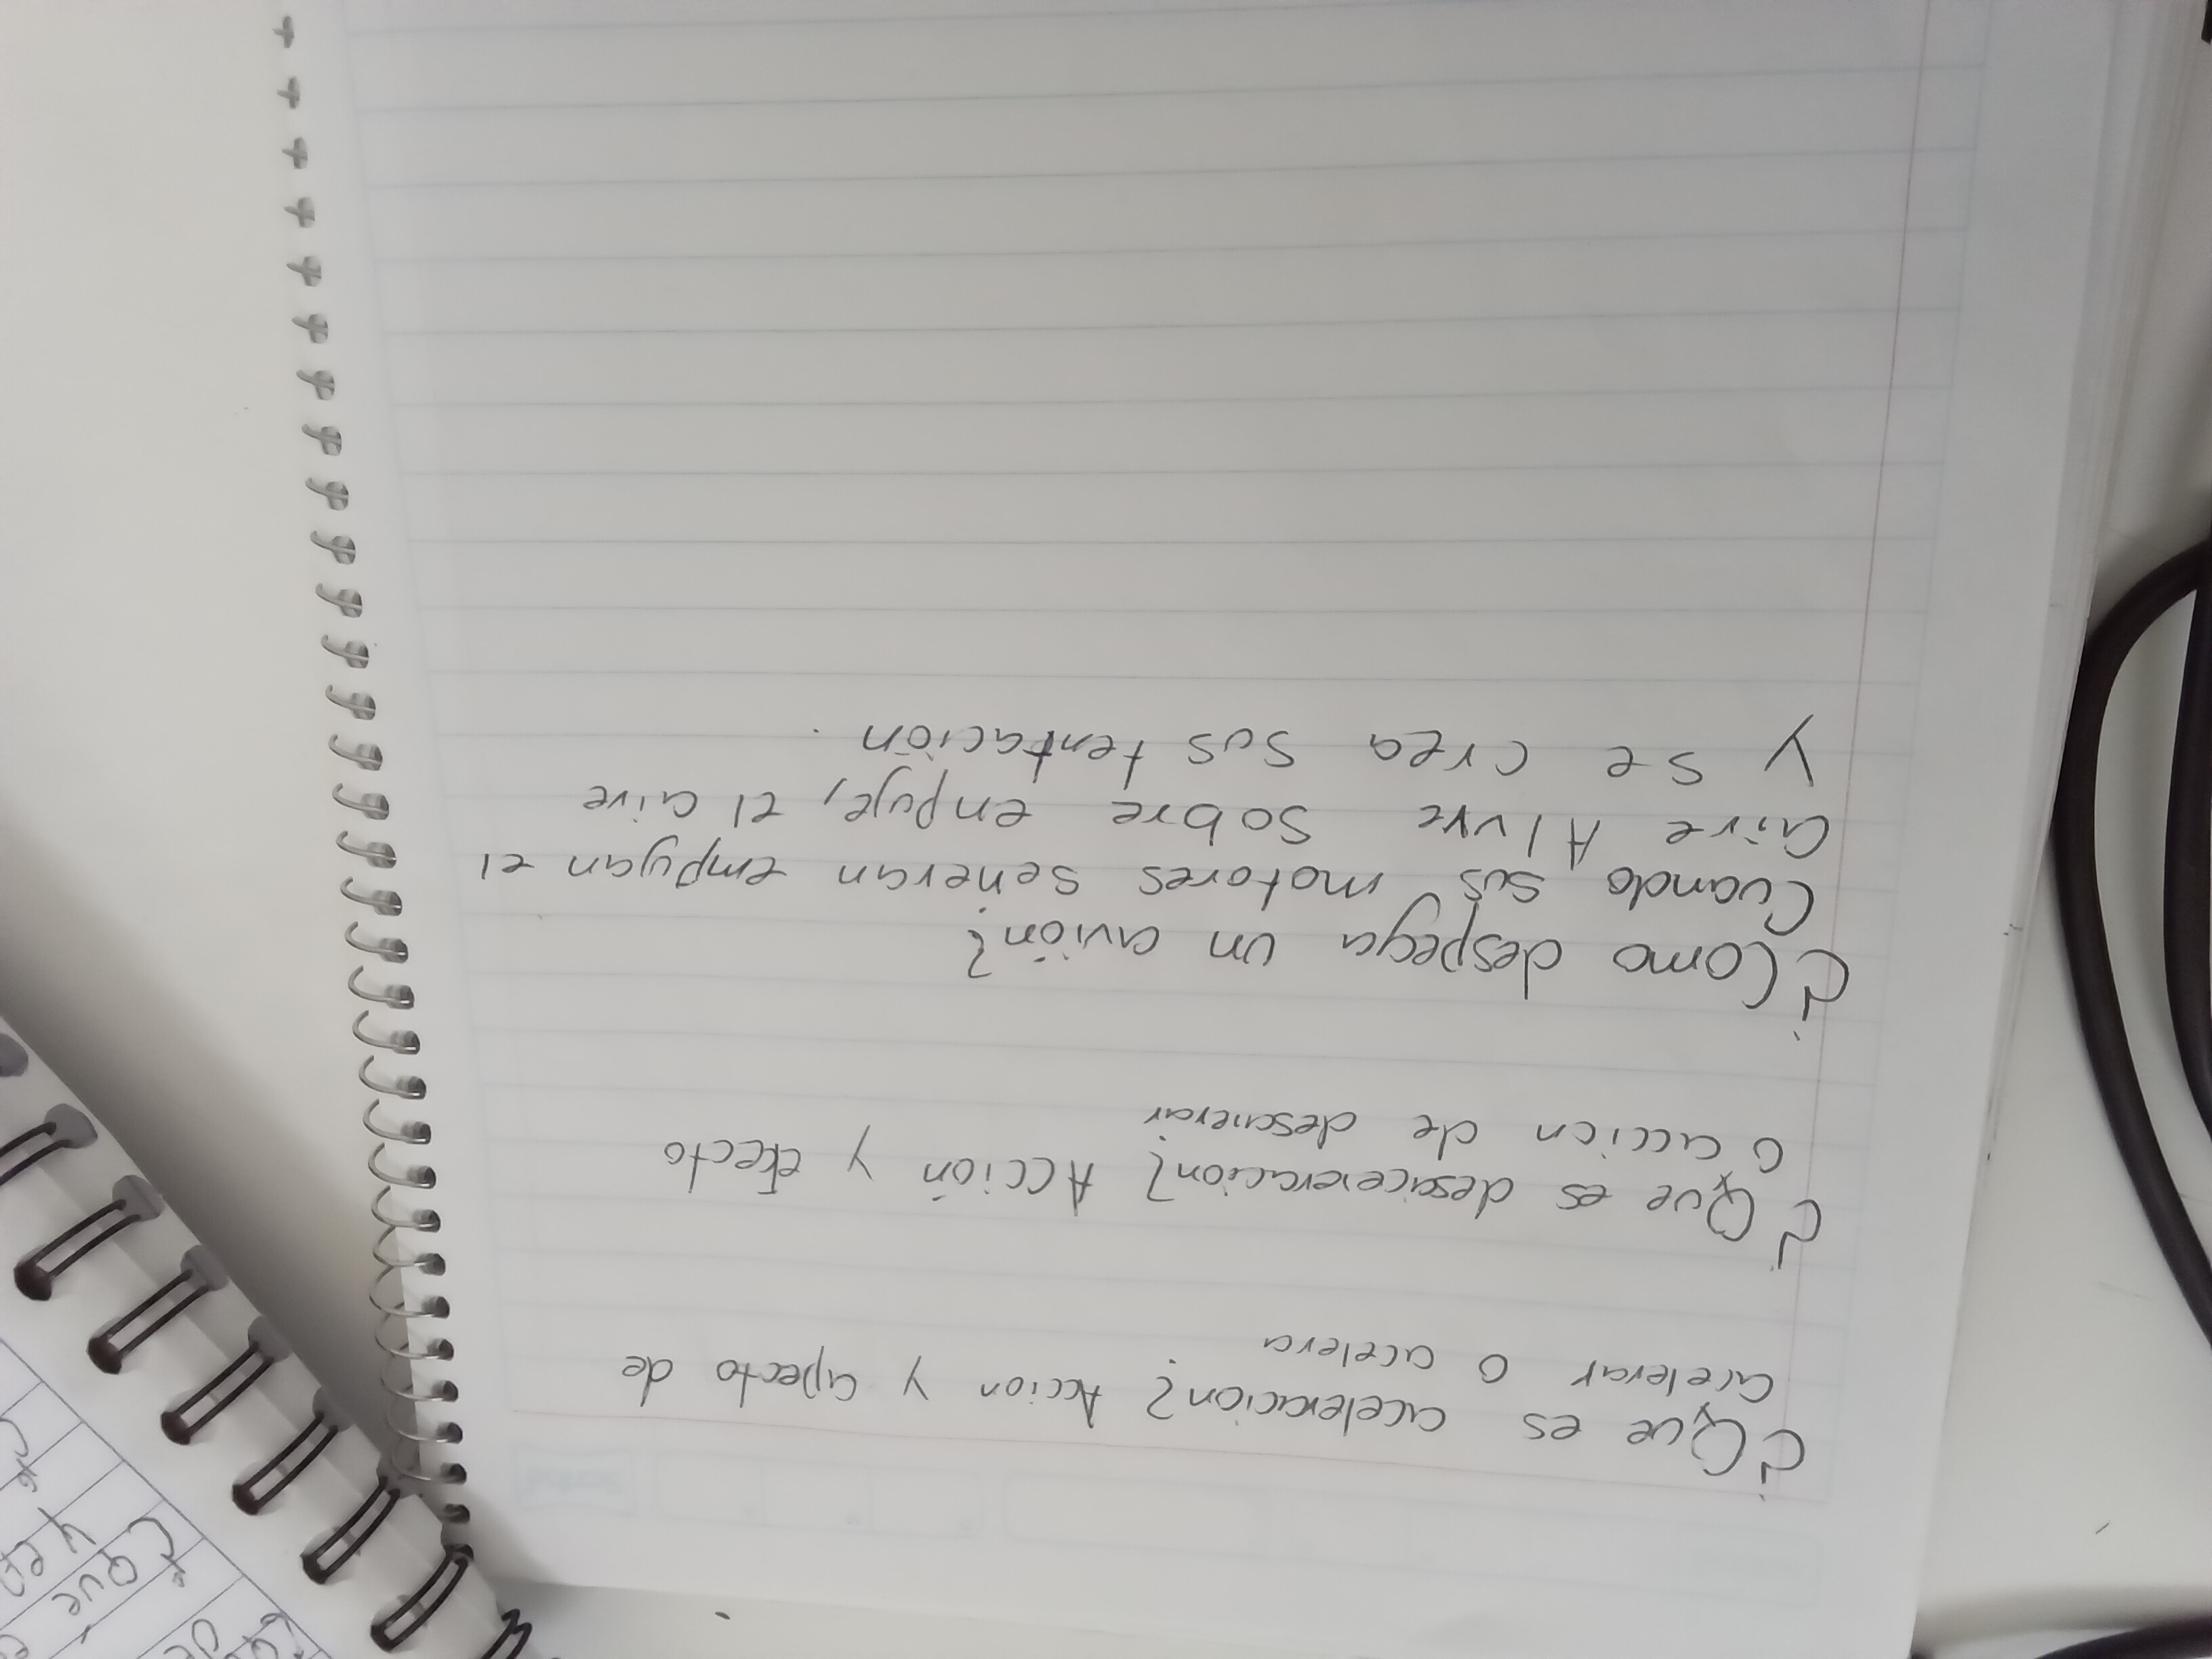 ¿Que es aceleracion? Accion y apecto de
acelerar o acelera
¿Que es desacereracion? Acción y efecto
o accion de descnerar
¿Como despega un avión?
Cuando sus motores seneran empujan el
aire Alvre sobre enpuje, el aire
y se crea sus tentación.
¿Que
y